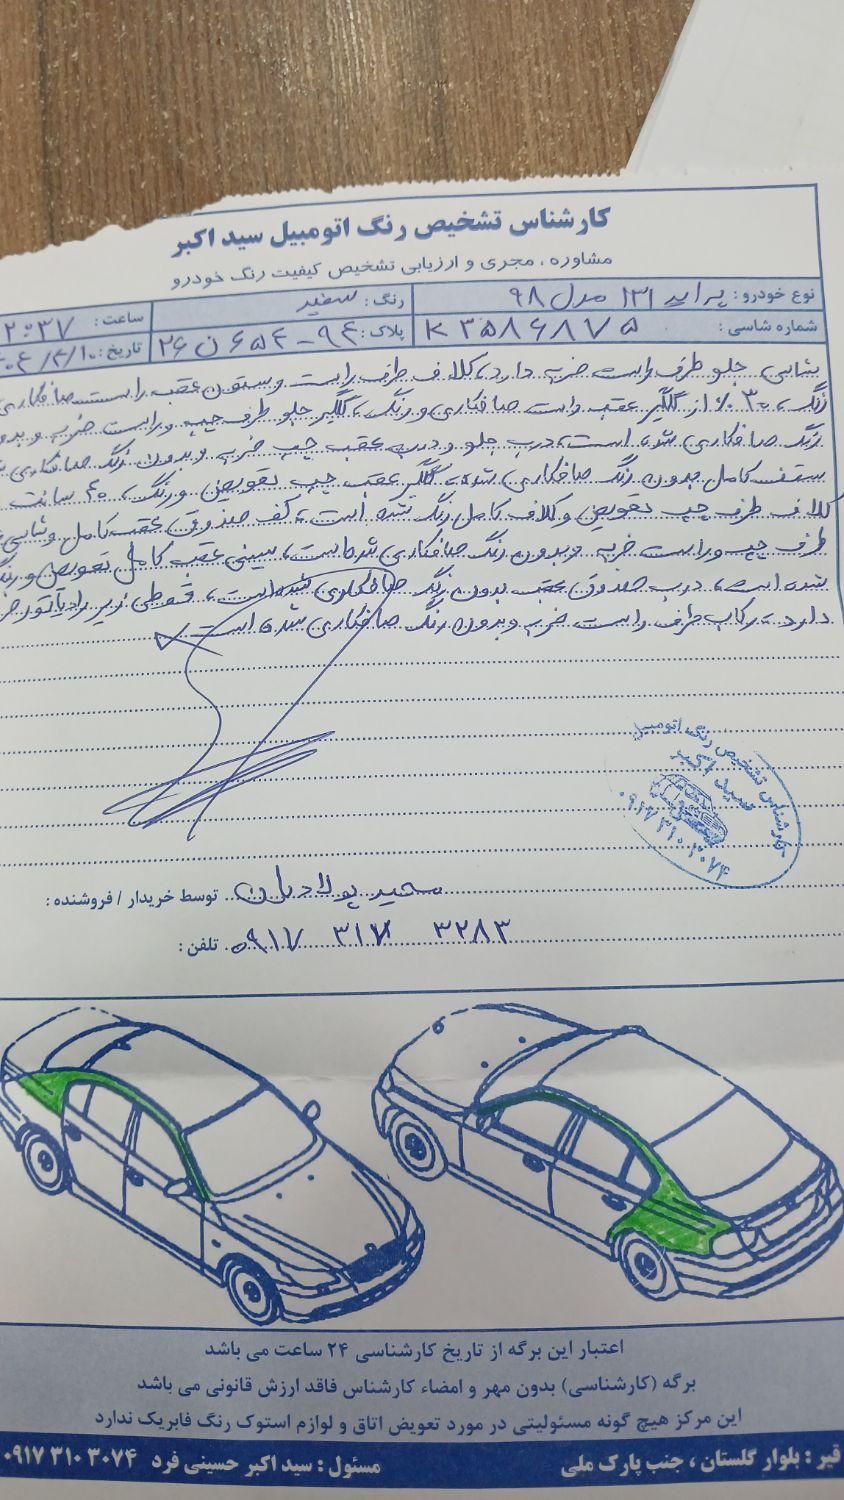 کارشناس تشخیص رنگ اتومبیل سید اکبر
مشاوره ، مجری و ارزیابی تشخیص کیفیت رنگ خودرو
نوع خودرو : پراید ۱۳۱ مدل ۹۸ رنگ : سفید ساعت : ۲:۳۷
شماره شاسی : K۳۵۸۶۸۷۵ پلاک : ۹۴-۶۵۲ن۲۶ تاریخ : ۰۴/۴/۱۰
شاسی جلو طرف راست ضربه دارد، کلاف طرف راست وستون عقب راست صافکاری
رنگ، ۳۰٪ از گلگیر عقب راست صافکاری ورنگ، گلگیر جلو طرف چپ وراست ضربه و بدو
رنگ صافکاری شده است، درب جلو ودرب عقب چپ ضربه وبدون رنگ صافکاری
سقف کامل بدون رنگ صافکاری شده، گلگیر عقب چپ تعویض ورنگ، ۴۰ سانت
کلاف طرف چپ تعویض وکلاف کامل رنگ شده است، کف صندوق عقب کامل وشاسی
طرف چپ وراست ضربه وبدون رنگ صافکاری شده است، سینی عقب کامل تعویض و رنگ
شده است، درب صندوق عقب بدون رنگ صافکاری شده است، قوطی زیر رادیاتور
دارد، رکاب طرف راست ضربه وبدون رنگ صافکاری شده است
کارشناس تشخیص رنگ اتومبیل
سید اکبر
۰۹۱۷ ۳۱۰ ۳۰۷۴
توسط خریدار / فروشنده : سعید پولادیان
تلفن : ۰۹۱۷ ۳۱۷ ۳۲۸۳
اعتبار این برگه از تاریخ کارشناسی ۲۴ ساعت می باشد
برگه (کارشناسی) بدون مهر و امضاء کارشناس فاقد ارزش قانونی می باشد
این مرکز هیچ گونه مسئولیتی در مورد تعویض اتاق و لوازم استوک رنگ فابریک ندارد
قیر : بلوار گلستان ، جنب پارک ملی مسئول : سید اکبر حسینی فرد ۰۹۱۷ ۳۱۰ ۳۰۷۴